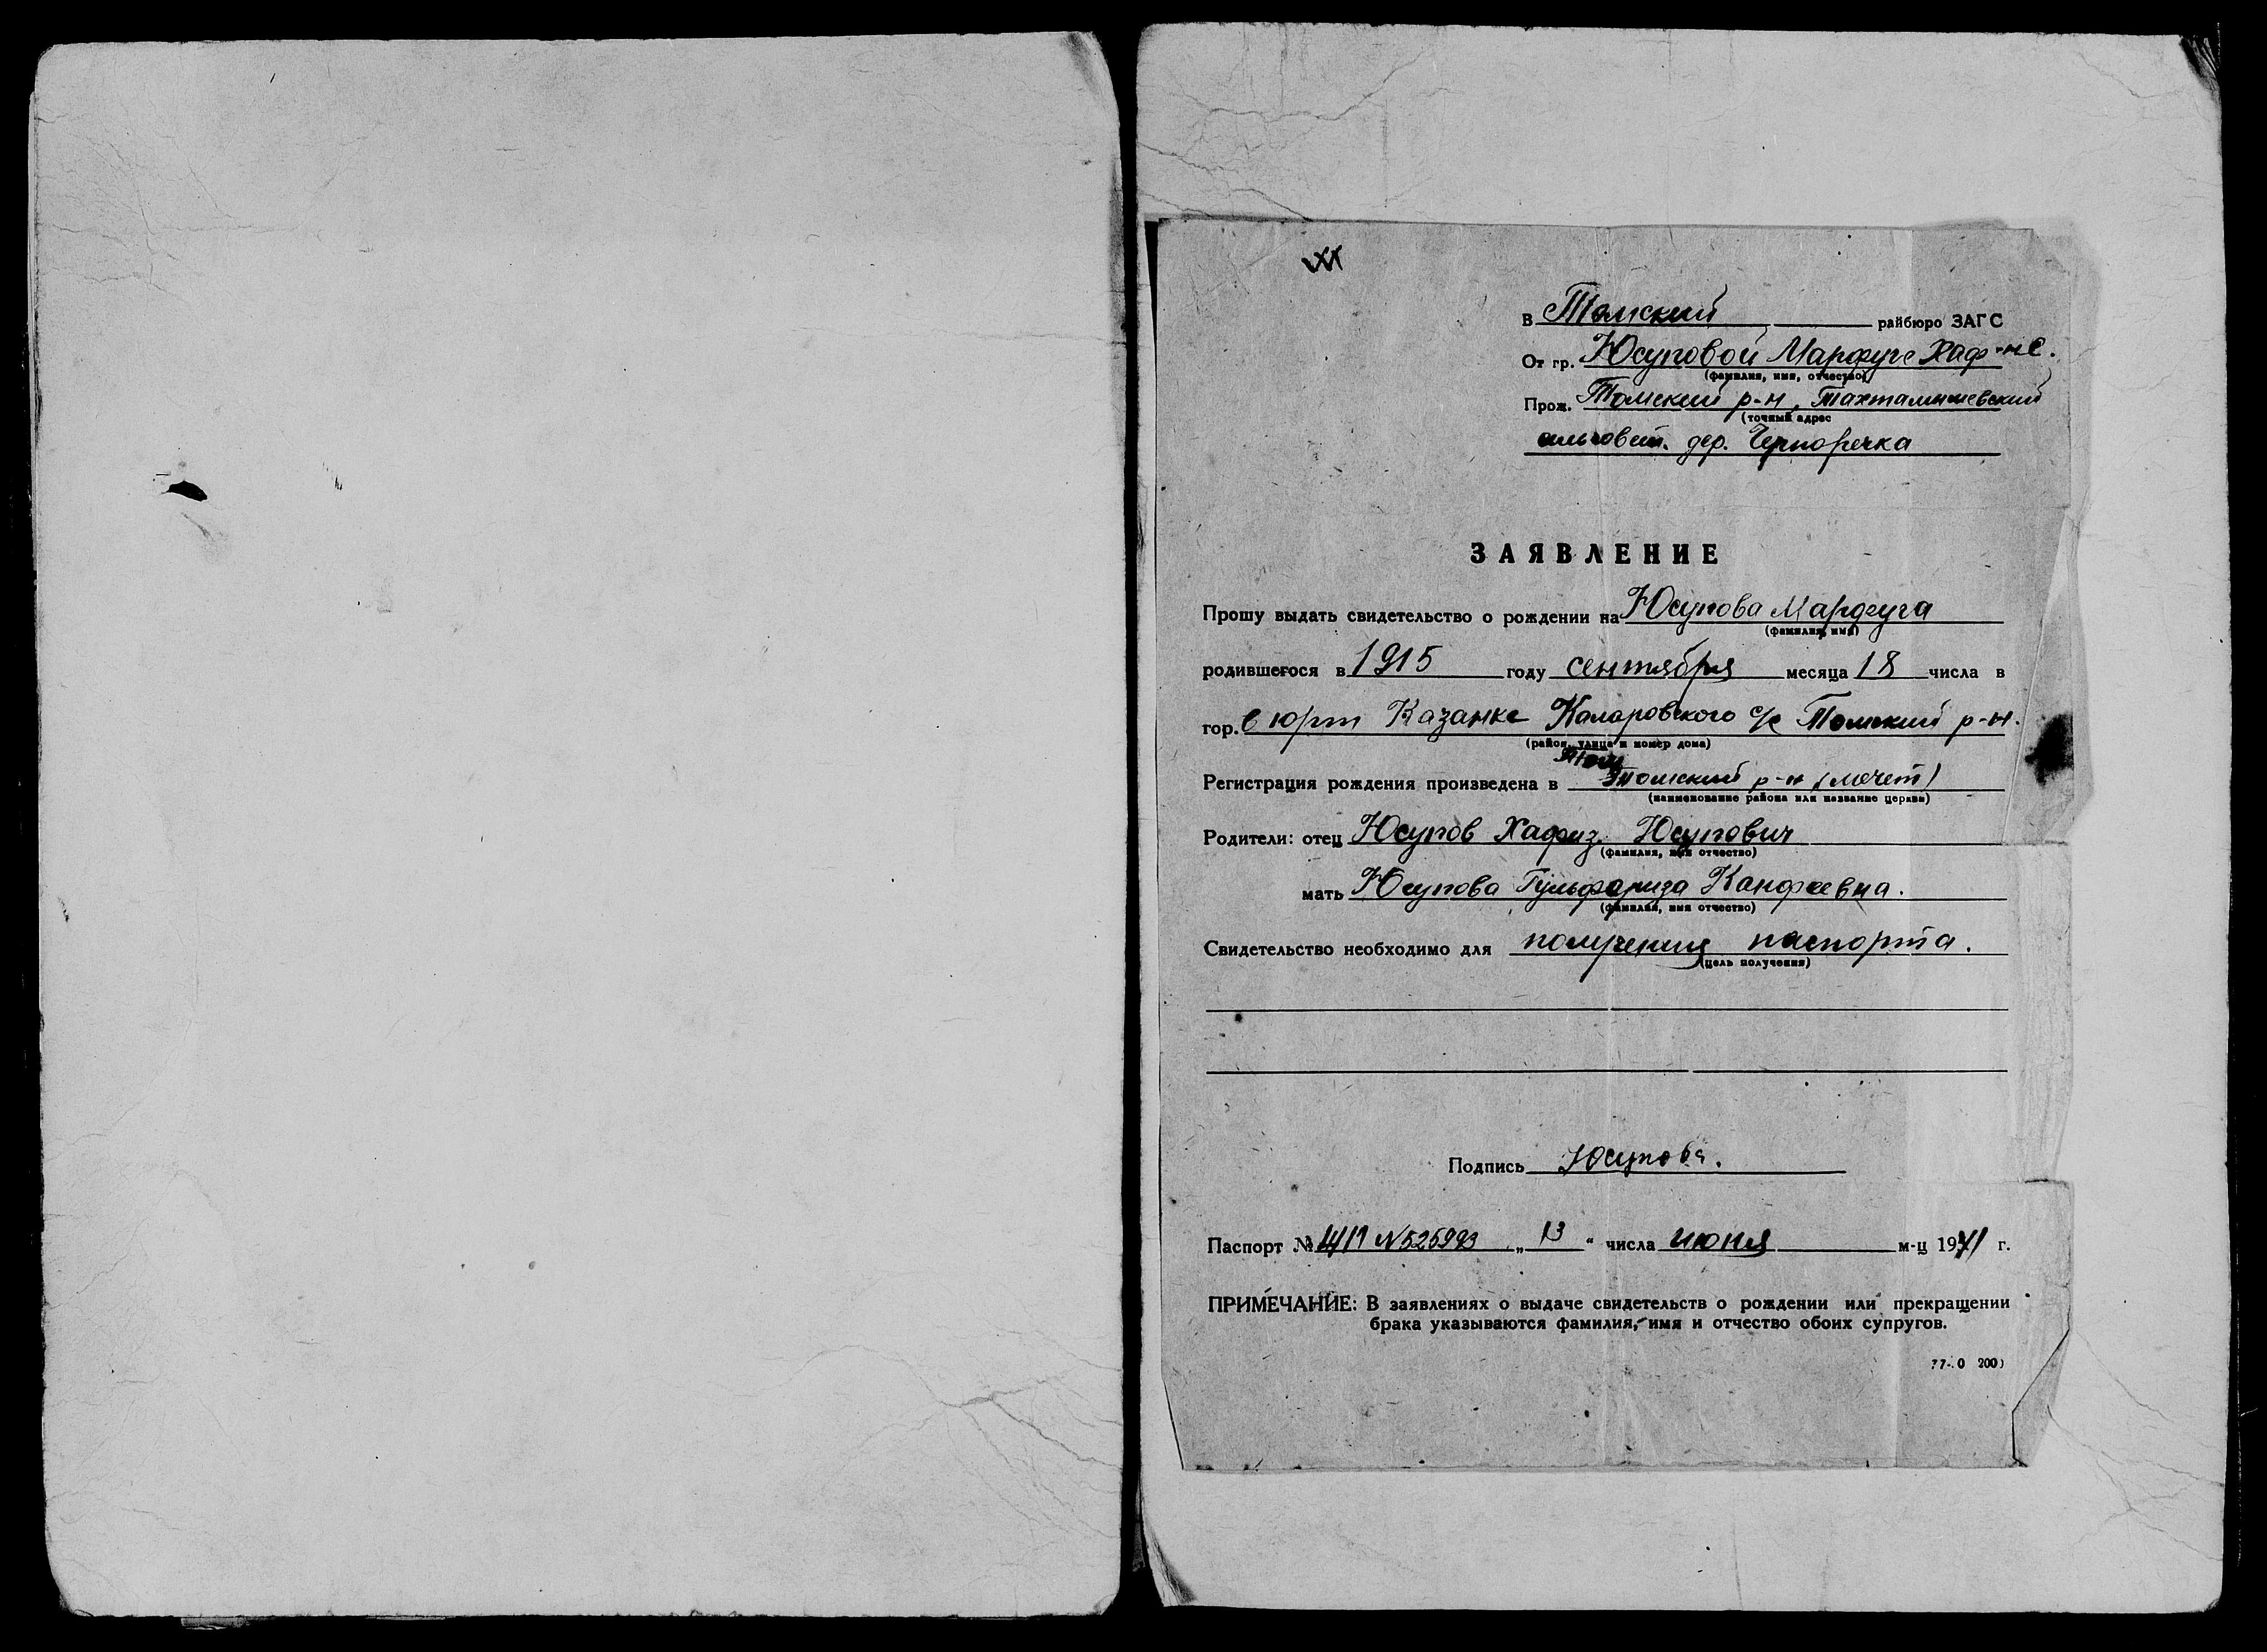 В Томский райбюро ЗАГС
От гр. Юсуповой Марфуге Хаф-не.
(фамилия, имя, отчество)
Прож. Томский р-н, Тахтамышевский
(точный адрес
сельсовет. дер. Черноречка
ЗАЯВЛЕНИЕ
Прошу выдать свидетельство о рождении на Юсупова Марфуга
(фамилия, имя)
родившегося в 1915 году сентября месяца 18 числа в
гор. в юрт Казанке Каларовского с/с Томский р-н.
(район, улица и номер дома)
Регистрация рождения произведена в Томский р-н (мечет)
(наименование района или название церкви)
Родители: отец Юсупов Хафиз. Юсупович
(фамилия, имя отчество)
мать Юсупова Гульфариза Канфеевна.
(фамилия, имя отчество)
Свидетельство необходимо для получения паспорта.
(цель получения)
Подпись Юсупова.
Паспорт № N 526993 „ 13 “ числа июня м-ц 1941 г.
ПРИМЕЧАНИЕ: В заявлениях о выдаче свидетельств о рождении или прекращении
брака указываются фамилия, имя и отчество обоих супругов.